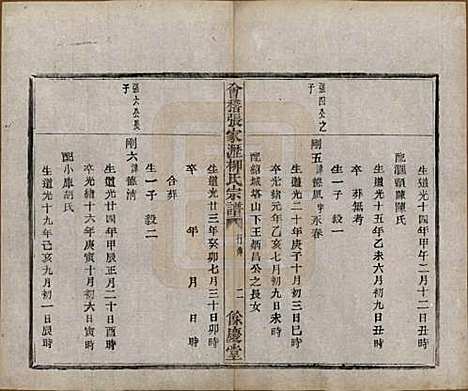 生道光十四年二月十二日丑時
配㶍頭陳陳氏
生道光十五年乙未六月初九日丑時
卒 葬無考
生一子毅一
張四公之子
剛五諱懋風字永春
生道光二十年庚子十月初三日辰時
卒光緒元年乙亥七月初九日未時
配紹城塔山下王炳昌公之長女
會稽張家瀝柳氏宗譜
行傳 二
餘慶堂
生道光廿三年癸卯七月三十日卯時
卒 年 月 日 時
合葬
生一子毅二
張六公長子
剛六諱懋清
生道光廿四年甲辰正月二十日酉時
卒光緒十六年庚寅十月初六日寅時
配小庫胡氏
生道光十九年己亥九月初一日辰時